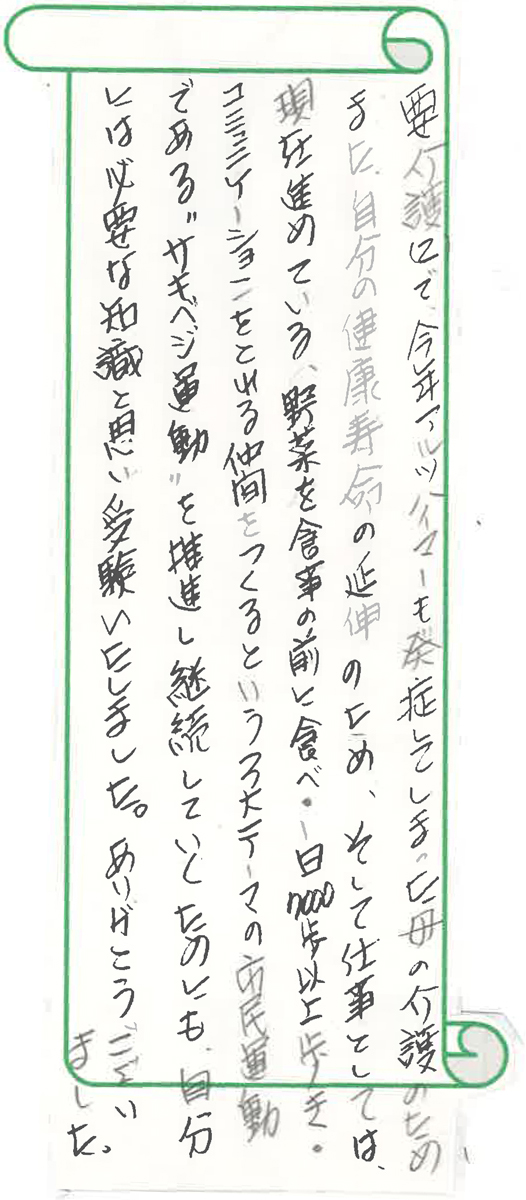 要介護口で、今年アルツハイマーも発症してしまった母の介護のため
また、自分の健康寿命の延伸のため、そして仕事としては、
現在進めている、野菜を食事の前に食べ・一日7000歩以上歩き・
コミュニケーションをとれる仲間をつくるという3大テーマの市民運動
である"サキベジ運動"を推進し継続していくためにも、自分
には必要な知識と思い受験いたしました。ありがとうござい
ました。